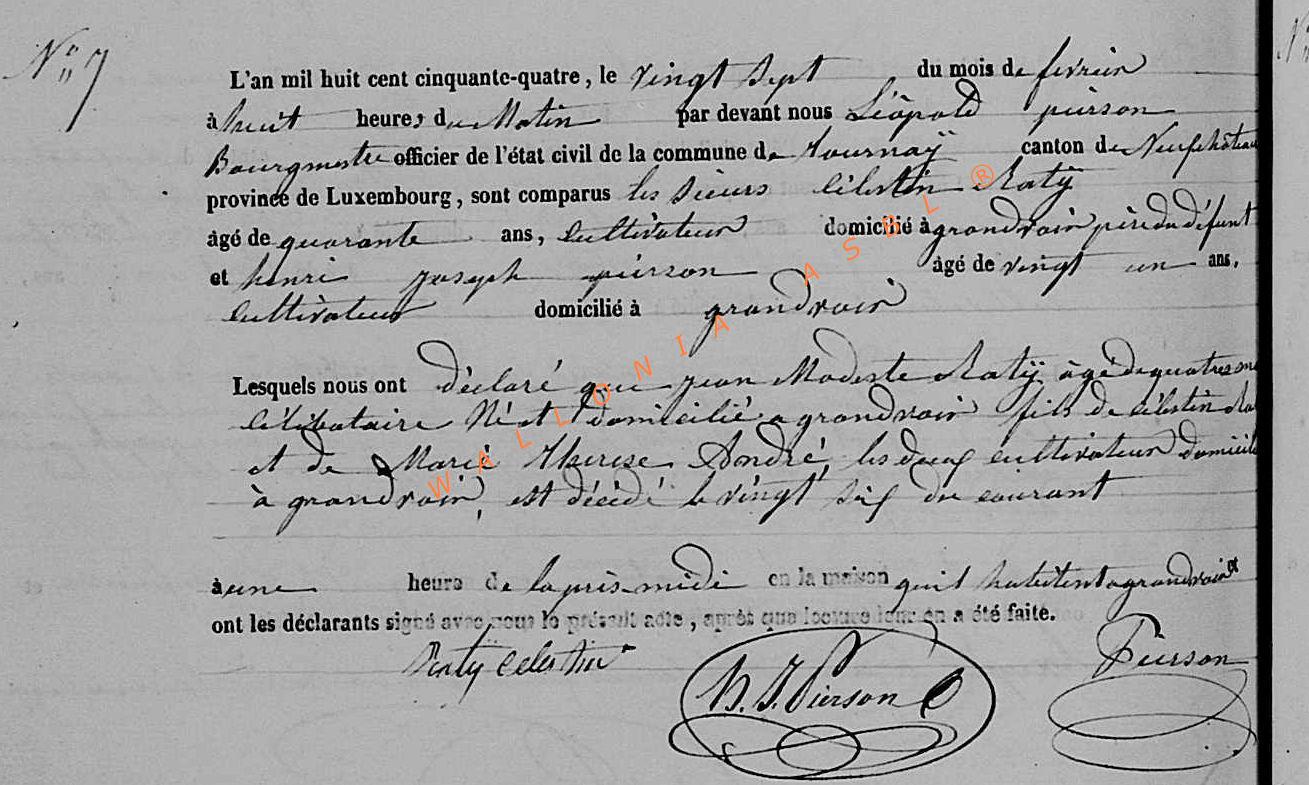 N° 7
L'an mil huit cent cinquante-quatre, le vingt sept du mois de fevrier
à huit heures du Matin par devant nous Léopold pierson
Bourgmestre officier de l'état civil de la commune de tournaÿ canton de Neufchâteau
province de Luxembourg, sont comparus les sieurs Célestin Ratÿ
âgé de quarante ans, Cultivateur domicilié à grandvoir père du défunt
et henri joseph pierson âgé de vingt un ans,
Cultivateur domicilié à grandvoir
Lesquels nous ont déclaré que jean Modeste Ratÿ âgé de quatres
célibataire Né et domicilié a grandvoir fils de Célestin
et de Marie therese André, les deux cultivateur domicilié
à grandvoir, est décédé le vingt six du courant
à une heure de laprès midi en la maison qu'il habitent a grandvoir et
ont les déclarants signé avec nous le présent acte, après que lecture leur en a été faite.
Ratÿ Celestin H. J. Pierson Pierson
WALLONIA ASBL ®